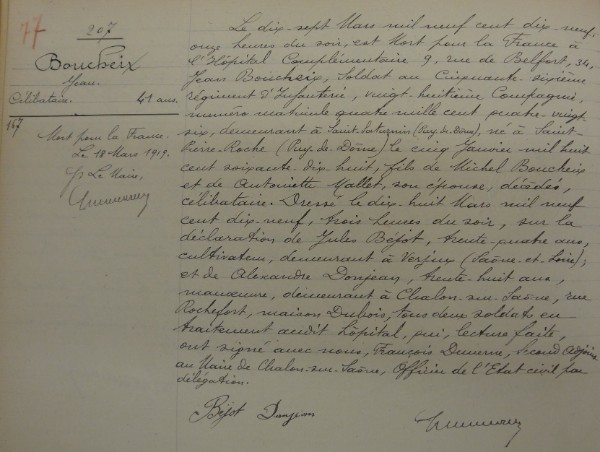 77
207
Boucheix
Jean
Célibataire. 41 ans.
147
Mort pour la France.
Le 18 Mars 1919.
Le Maire,
Le dix-sept Mars mil neuf cent dix-neuf,
onze heures du soir, est Mort pour la France à
l'Hôpital Complémentaire 9, rue de Belfort, 34,
Jean Boucheix, Soldat au Cinquante-sixième
régiment d'Infanterie, vingt-huitième Compagnie,
numéro matricule quatre mille cent quatre-vingt-
six, demeurant à Saint-Saturnin (Puy-de-Dôme), né à Saint-
Pierre-Roche (Puy-de-Dôme) le cinq Janvier mil huit
cent soixante-dix-huit, fils de Michel Boucheix
et de Antoinette Mallet, son épouse, décédés,
célibataire. Dressé le dix-huit Mars mil neuf
cent dix-neuf, trois heures du soir, sur la
déclaration de Jules Béfjot, trente-quatre ans,
cultivateur, demeurant à Verjux (Saône-et-Loire);
et de Alexandre Donjean, trente-huit ans,
manœuvre, demeurant à Chalon-sur-Saône, rue
Rochefort, maison Dubois, tous deux soldats en
traitement audit hôpital, qui, lecture faite,
ont signé avec nous, François Dumerne, Second Adjoint
au Maire de Chalon-sur-Saône, Officier de l'Etat civil par
délégation.
Donjean